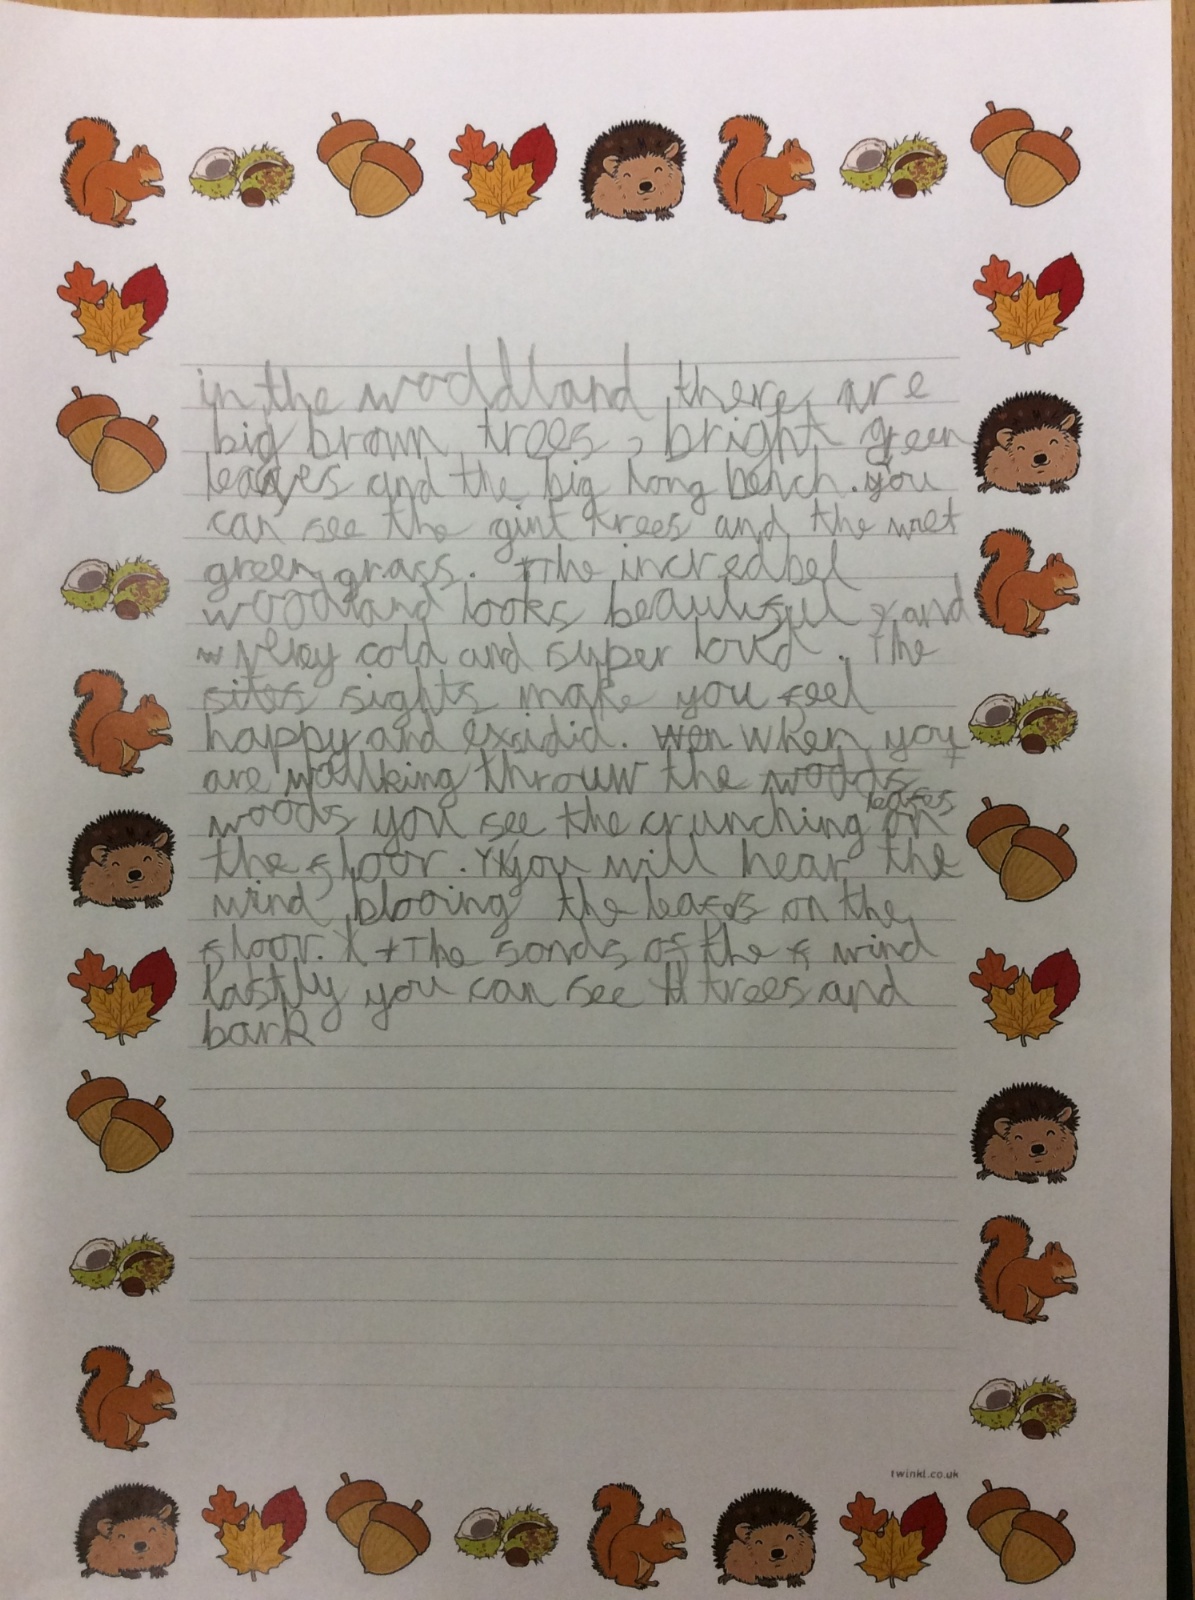 in the woddland there are
big brown trees, bright green
leaves and the big long bench. you
can see the gint trees and the wet
green grass. The incredbel
woodland looks beautiful and
very cold and super loud. The
sites sights make you feel
happy and exidid. wen when you
are wallking throuw the wodds
leafes
woods you see the crunching on
the floor. you will hear the
wind blooing the leafes on the
floor. The sonds of the wind
lastly you can see trees and
bark
twinkl.co.uk